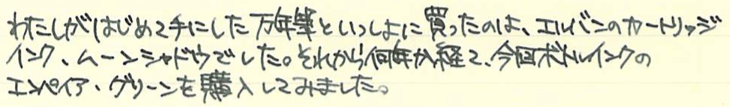 わたしがはじめて手にした万年筆といっしょに買ったのは、エルバンのカートリッジ
インク、ムーンシャドウでした。それから何年か経て、今回ボトルインクの
エンペイア・グリーンを購入してみました。